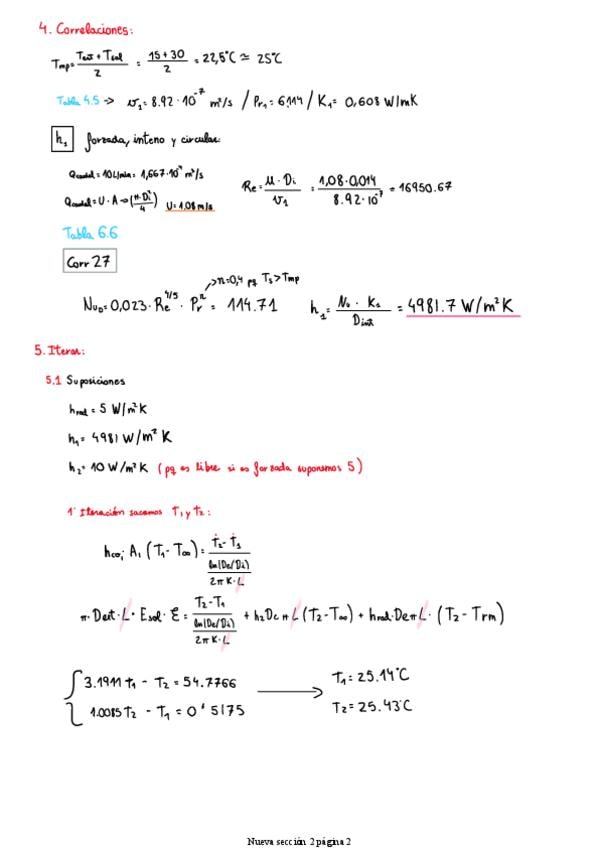 4. Correlaciones:
Tmp = (Text + Tsal)/2 = (15 + 30)/2 = 22,5°C ≃ 25°C
Tabla 4.5 -> υ1 = 8.92·10^-7 m²/s / Pr1 = 6,114 / K1 = 0,608 W/mK
h1 forzada, inteno y circular
Qcaudal = 10L/min = 1,667·10^-4 m³/s
Qcaudal = U·A -> (π·Di²/4) U = 1.08 m/s
Re = μ·Di/υ1 = 1,08·0,014/8.92·10^-7 = 16950.67
Tabla 6.6
Corr 27
-> n=0,4 pq Ts > Tmp
NuD = 0,023·Re^4/5·Pr^n = 114.71 h1 = Nu·K1/Dint = 4981.7 W/m²K
5. Iterar:
5.1 Suposiciones
hrad = 5 W/m²K
h1 = 4981 W/m²K
h2 = 10 W/m²K (pq es libre si es forzada suponemos 5)
1ª Iteración sacamos T1 y T2:
A1 (T1 - T∞) = (T2 - T1)/(ln(De/Di)/2πK·L)
π·Dext·L·Esol·ε = (T2 - T1)/(ln(De/Di)/2πK·L) + h2 De π L (T2 - T∞) + hrad·De π L·(T2 - Trm)
3.1911 T1 - T2 = 54.7766
1.0085 T2 - T1 = 0'5175
T1 = 25.14°C
T2 = 25.43°C
Nueva sección 2 página 2